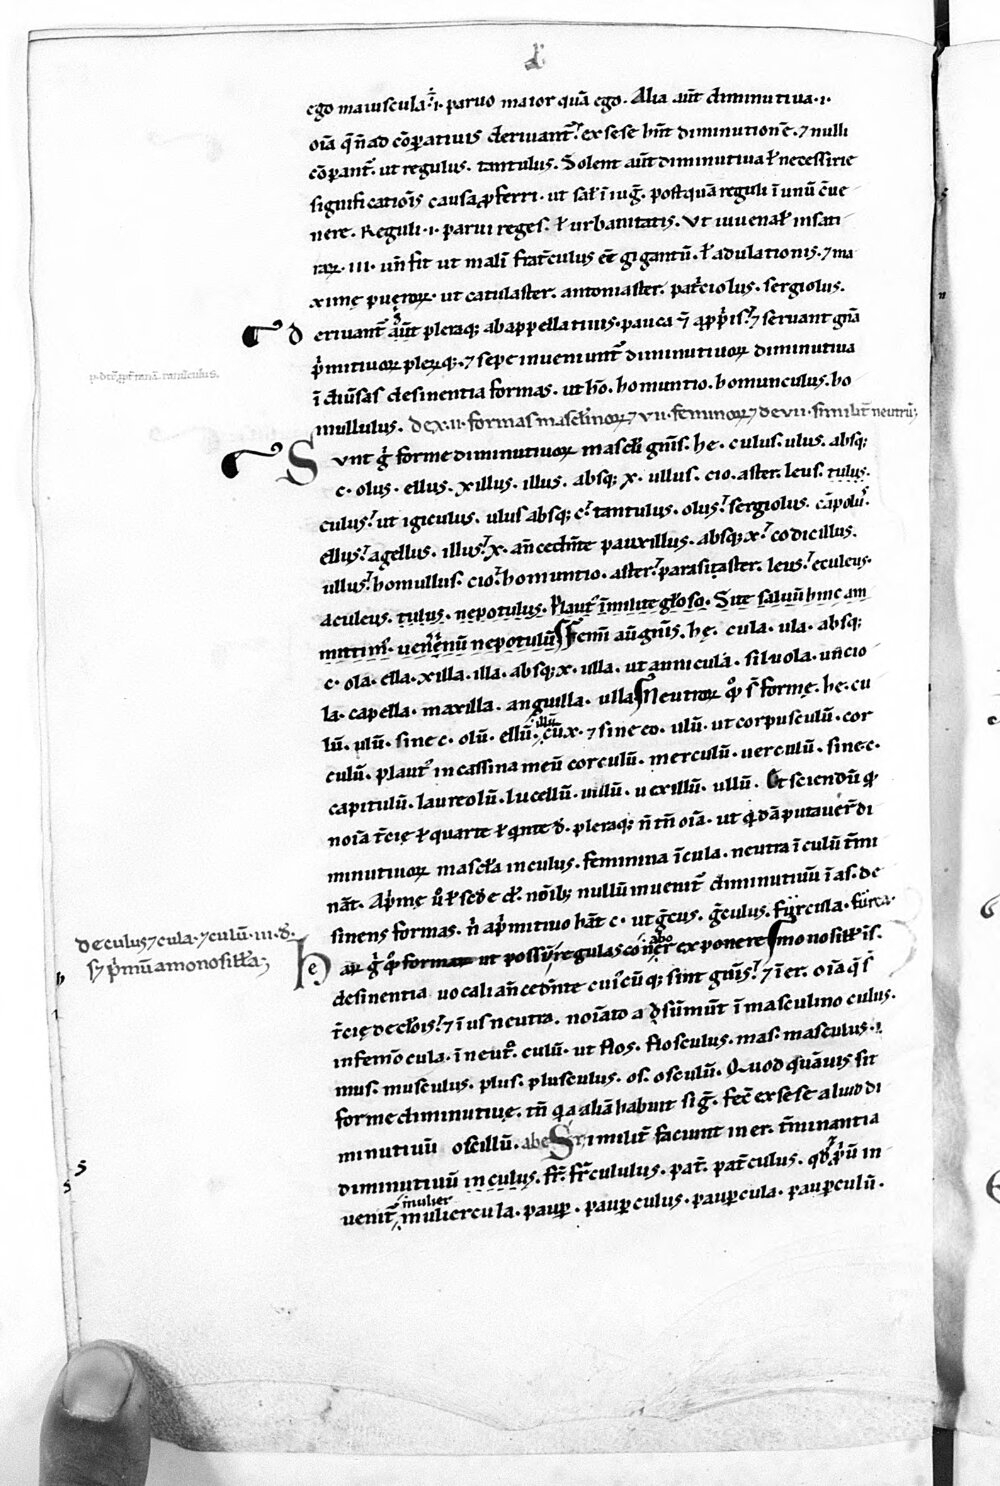 ego maiuscula .i. paruo maior quā ego. Alia aūt diminutiua .i.
oīa q̄ n̄ ad cōparatiuis deriuant᷑ ex sese hn̄t diminutionē. ⁊ nulli
cōparant᷑. ut regulus. tantulus. Solent aūt diminutiua ł necessarie
significationis causa ꝓferri. ut sał ī iug̅. postquā reguli ī unū cōue
nere. Reguli .i. parui reges. ł urbanitatis. Vt iuuenał in sati
raꝝ .III. un̄ fit ut malim frat̄culus eē gigantū. ł adulationis. ⁊ ma
xime pueroꝝ. ut catulaster. antoniaster. pat̄ciolus. sergiolus.
Deriuant᷑ aūt pleraq; ab appellatiuis. pauca ⁊ a ꝓpriis. ⁊ seruant gn̄a
p̄mitiuoꝝ pleraq;. ⁊ sepe inueniunt᷑ diminutiuoꝝ diminutiua
ī diūsas desinentia formas. ut hō. homuntio. homunculus. ho
mullulus. De .x.ii. formas masclinoꝝ ⁊ vii. femininoꝝ ⁊ de vii. similit̄ neutrū;
Svnt g̊ forme diminutiuoꝝ mascli gn̄is. he. culus. ulus. absq;
c. olus. ellus. xillus. illus. absq; x. ullus. cio. aster. leus. tulus.
culus. ut igiculus. ulus absq; c. tantulus. olus. sergiolus. cāpolus.
ellus. agellus. illus. x. an̄cedn̄te pauxillus. absq; x. codicillus.
ullus. homullus. cio. homuntio. aster. parasitaster. leus. eculeus.
aculeus. tulus. nepotulus. Plaut᷑ ī milite gl̄oso. Site saluū hinc am
mittim᷑. uenerīū nepotulū Femī aū gn̄is. hę. cula. ula. absq;
c. ola. ella. xilla. illa. absq; x. ulla. ut annicula. siluola. uncio
la. capella. maxilla. anguilla. ulla Neutroꝝ qꝫ s̄ forme. he. cu
lū. ulū. sine c. olū. ellū. illū cū x. ⁊ sine eo. ulū. ut corpusculū. cor
culū. plaut᷑ in cassina meū corculū. merculū. uerculū. sine c.
capitulū. laureolū. lucellū. uillū. uexillū. ullū. Et sciendū qꝫ
noīa t̄cię ł quarte ł qinte d̄. pleraq; n̄ tn̄ oīa. ut qdā putauer̄ di
minutiuoꝝ mascla in culus. feminina ī cula. neutra ī culū t̄mi
nāt. A p̄me ū ł scd̄e d̄. noībꝫ nullū inuenit᷑ diminutiuū ī as. de
sinens formas. n̄ a p̄mitiuo hāt c. ut gr̄cus. gr̄culus. furcilla. furca.
De culus ⁊ cula. ⁊ culū. III. d̄.
s; p̄mū a monosilł̄a;
Haꝝ g̊ qꝫ formaꝝ ut possum regulas conabor exponere monosill̄is.
desinentia uocali an̄cedn̄te cuiᶜūq; sint gn̄is. ⁊ ī er. oīa q̄ s̄
t̄cię declōis. ⁊ ī us neutra. noīatō adsūmūt ī masculino culus.
in femīo cula. ī neut᷑o. culū. ut flos. flosculus. mas. masculus.
mus. musculus. plus. plusculus. os. osculū. Quod quāuis sit
forme diminutiuę. tn̄ qa aliā habuit sig̅. fec̄ ex sese aliud di
minutiuū oscillū. ab er Similit̄ faciunt in er. t̄minantia
diminutiuū in culus. fr̄. fr̄culus. pat̄. pat̄culus. qd̄ p̄ū in
uenit᷑ mulier muliercula. paup̄. paup̄culus. paup̄cula. paup̄culū.